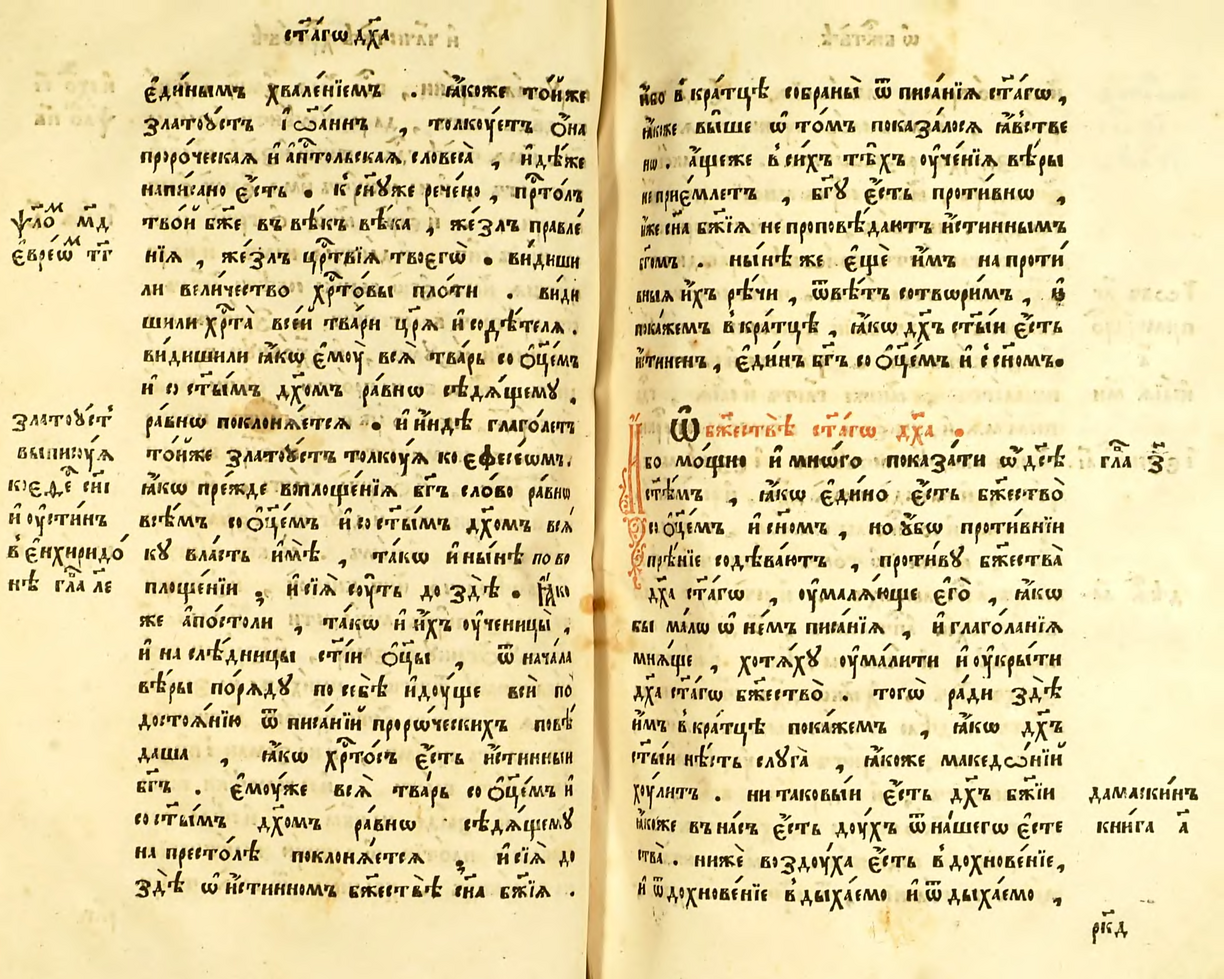 ст҃а́гѡ дх҃а
є҆ди́нымъ хвале́нїемъ . ꙗ҆́коже то́йже
златоу́стъ і҆ѡа́ннъ , толкꙋ́етъ ѻ҆́на
проро́ческаѧ и҆ а҆пⷭ҇тольскаѧ словеса̀ , и҆дѣ́же
написано є҆́сть . к сн҃ꙋже рече́но , прⷭ҇то́лъ
тво́й бж҃е въ вѣ́къ вѣ́ка , же́злъ правле́
ѱло́м м҃д
нїѧ , же́злъ црⷭ҇твїѧ твоегѡ̀ . ви́диши
є҆вре́ѡм г҃і
ли вели́чество хрⷭ҇то́вы пло́ти . ви́ди
шили хрⷭ҇та̀ все́й тва́ри цр҃ѧ̀ и҆ содѣ́телѧ .
ви́дишили ꙗ҆́кѡ є҆моу̀ всѧ̀ тва́рь со ѻ҆ц҃е́мъ
и҆ со ст҃ы́мъ дх҃омъ ра́внѡ сѣдѧ́щемꙋ ,
ра́внѡ поклонѧ́етсѧ . и҆ и҆́ндѣ глаго́летъ
златоу́ст
то́йже златоу́стъ толкꙋ́ѧ ко єфесеѡмъ .
ꙗ҆́кѡ прежде воплоще́нїѧ бг҃ъ сло́во ра́внѡ
всѣ́мъ со ѻ҆ц҃е́мъ и҆ со ст҃ы́мъ дх҃омъ всѧ́
и҆ оу҆сти́нъ
кꙋ вла́сть и҆мѣ̀ , та́кѡ и҆ ны́нѣ по во
в є҆нхиридо́
площе́нїи , и҆ сїѧ̀ соу́ть до здѣ̀ . Ꙗ҆ко
нѣ гл҃а л҃е
же а҆по́столи , та́кѡ и҆ и҆́хъ оу҆ченицы̀ ,
и҆ на слѣ́дницы ст҃і́и ѻ҆ц҃ы̀ , ѿ нача́ла
вѣ́ры по́рѧдꙋ по себѣ̀ и҆дꙋ́ще вси́ по
достоѧ́нїю ѿ писа́нїй проро́ческихъ повѣ́
даша , ꙗ҆́кѡ хрⷭ҇то́съ є҆́сть и҆́стинныи
бг҃ъ . є҆моу́же всѧ̀ тва́рь со ѻ҆ц҃е́мъ и҆
со ст҃ы́мъ дх҃омъ ра́внѡ сѣдѧ́щемꙋ
на престо́лѣ поклонѧ́етсѧ , и҆ сїѧ̀ до
здѣ̀ ѡ҆ и҆́стинномъ бж҃ествѣ̀ сн҃а бж҃їѧ .
и҆́бо в кра́тцѣ собраны̀ ѿ писа́нїѧ ст҃а́гѡ ,
ꙗ҆́коже вы́ше ѡ҆ то́мъ показа́лосѧ ꙗ҆́встве
нѡ . а҆́щеже в си́хъ тѣ́хъ оу҆че́нїѧ вѣ́ры
не прїе́млетъ , бг҃ꙋ є҆́сть проти́внѡ ,
и҆́же сн҃а бж҃їѧ не проповѣ́даютъ и҆́стиннымъ
бг҃омъ . ны́нѣ же є҆щѐ и҆́мъ на проти
вныѧ и҆́хъ рѣ́чи , ѿвѣ́тъ сотвори́мъ , и҆
пока́жемъ в кра́тцѣ , ꙗ҆́кѡ дх҃ъ ст҃ы́и є҆́сть
и҆́стиненъ , є҆ди́нъ бг҃ъ со ѻ҆ц҃е́мъ и҆ с сн҃омъ .
Ѡ҆ бж҃ествѣ̀ ст҃а́гѡ дх҃а .
И҆бо мо́щно и҆ мно́гѡ показа́ти ѡ҆ дс҃ѣ
гл҃а з҃
ст҃ѣ́мъ , ꙗ҆́кѡ є҆ди́но є҆́сть бж҃ество̀
со ѻ҆ц҃е́мъ и҆ сн҃омъ , но оу҆́бѡ проти́внїи
прѣ́нїе содѣ́ваютъ , проти́вꙋ бж҃ества̀
дх҃а ст҃а́гѡ , оу҆малѧ́юще є҆го̀ , ꙗ҆́кѡ
бы ма́лѡ ѡ҆ не́мъ писа́нїѧ , и҆ глаго́ланїѧ
мнѧ́ще , хотѧ́хꙋ оу҆мали́ти и҆ оу҆кры́ти
дх҃а ст҃а́гѡ бж҃ество̀ . тогѡ̀ ра́ди здѣ̀
и҆́мъ в кра́тцѣ пока́жемъ , ꙗ҆́кѡ дх҃ъ
ст҃ы́и нѣ́сть слꙋга̀ , ꙗ҆́коже македѡ́нїй
хоу́литъ . ни таковы́и є҆́сть дх҃ъ бж҃їи
дамаски́нъ
ꙗ҆́коже въ на́съ є҆́сть доу́хъ ѿ на́шегѡ є҆сте
кни́га а҃
ства̀ . нижѐ возду́ха є҆́сть вдохнове́нїе ,
и҆ ѿдохнове́нїе вдыха́емо и҆ ѿдыха́емо ,
рк҃д